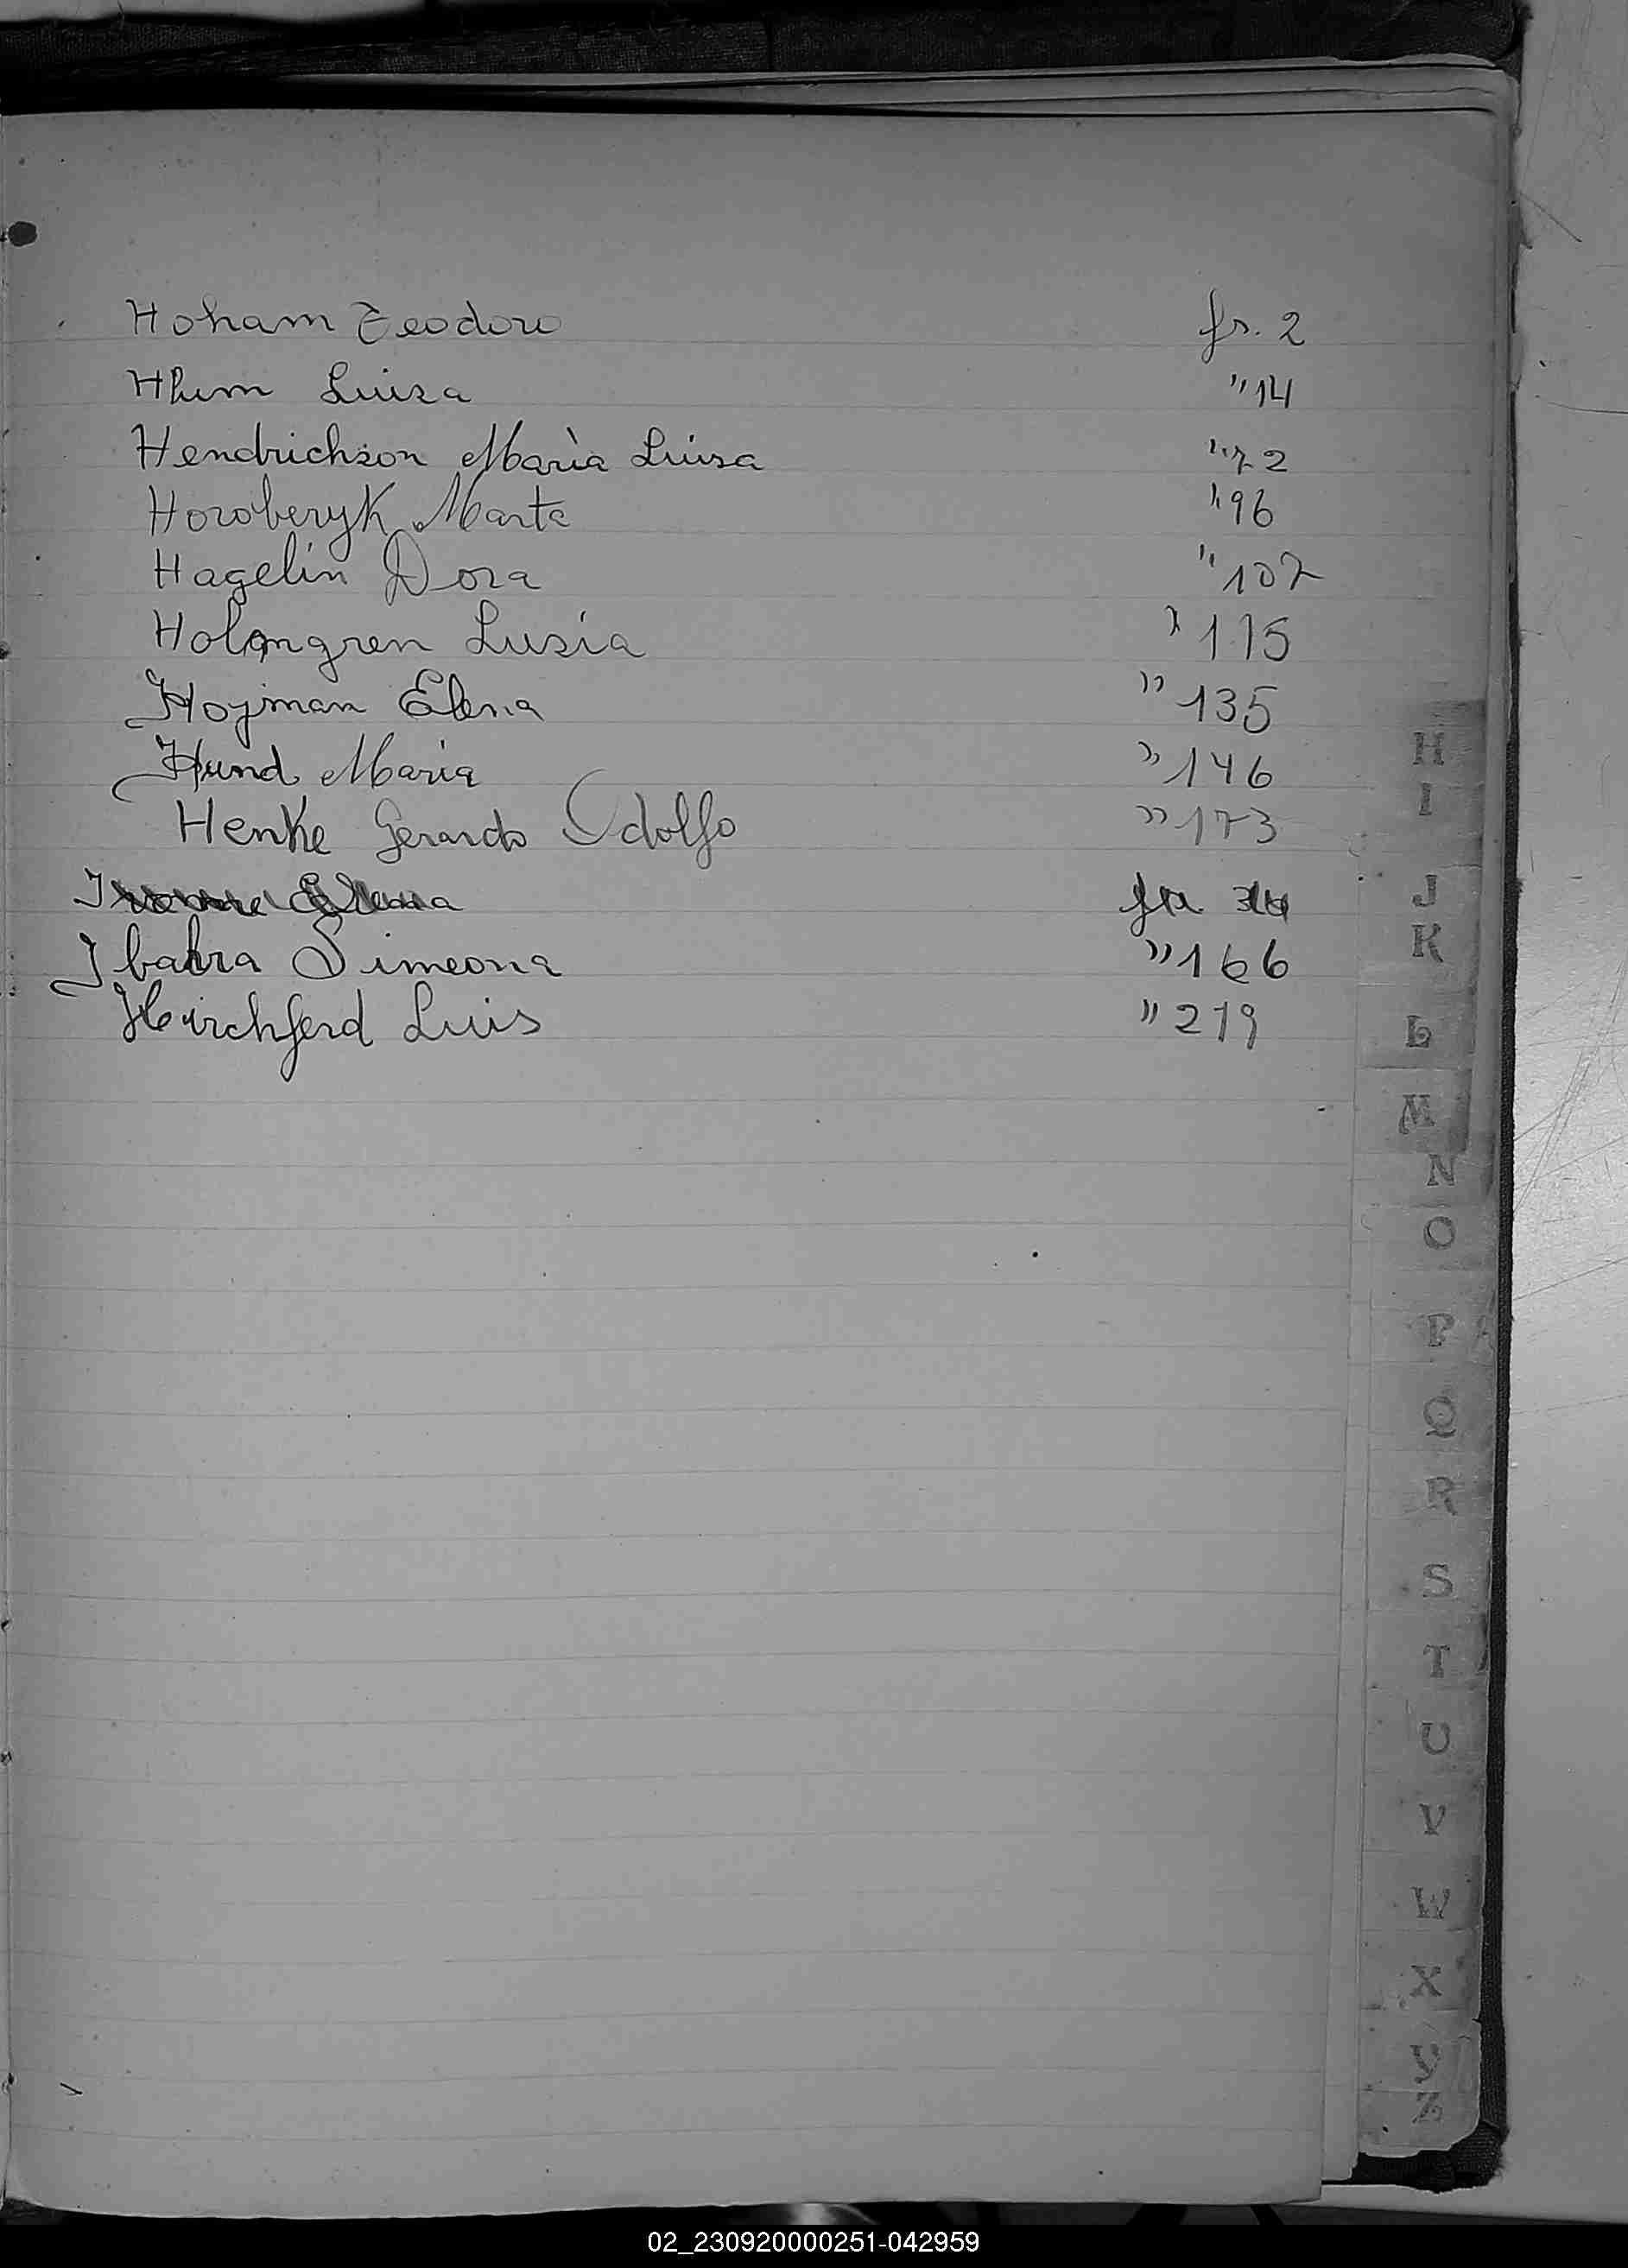 Hoham Teodoro fs. 2
Hlum Luisa " 14
Hendrichson María Luisa " 72
Horoberyk Marta " 96
Hagelin Dora " 107
Holmgren Lusía " 115
Hojman Elena " 135
Hund María " 146
Henke Gerardo Odolfo " 173
Ibarra Simeona " 166
Hirchferd Luis " 219
H
I
J
K
L
M
N
O
P
Q
R
S
T
U
V
W
X
Y
Z
02_230920000251-042959